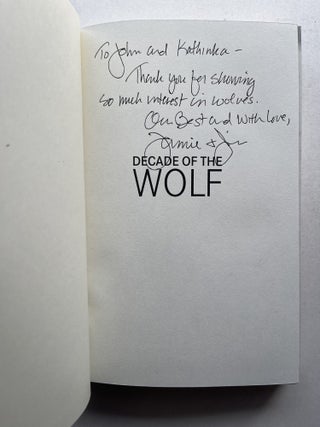 To John and Kathinka –
Thank you for showing
so much interest in wolves.
Our Best and With Love,
Jamie & Jim
DECADE OF THE
WOLF